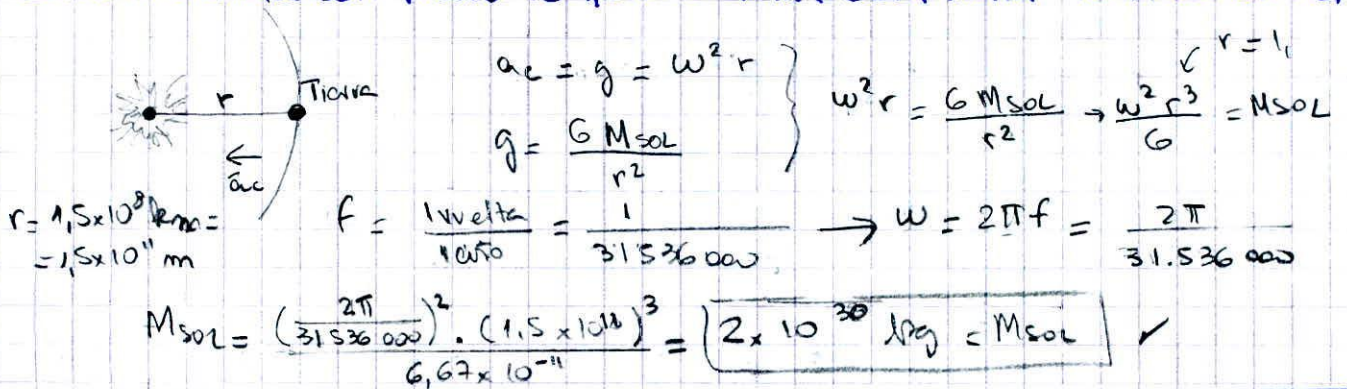 r = 1,
ac = g = ω² r
g = G MSOL / r²
ω² r = G MSOL / r² → ω² r³ / G = MSOL
r
Tierra
ac
r = 1,5x10⁸ km =
= 1,5x10¹¹ m
f = 1 vuelta / 1 año = 1 / 31536000 → ω = 2πf = 2π / 31.536000
MSOL = (2π / 31536000)² · (1,5 x 10¹¹)³ / 6,67x10⁻¹¹ = 2x10³⁰ kg = MSOL ✓